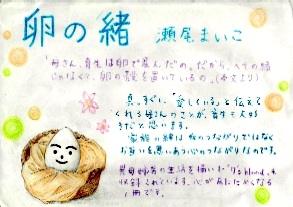 卵の緒 瀬尾まいこ
「母さん、育生は卵で産んだの。だから、へその緒
じゃなくて、卵の殻を置いているの。」(本文より)
真っすぐに「愛している」と伝えて
くれる母さんのことが、育生も大好
きだと思います。
家族の絆は血のつながりではなく
お互いを思いあう心のつながりなのです。
異母姉弟の生活を描いた「7's blood」も
収録されています。心があたたかくなる
1冊です。